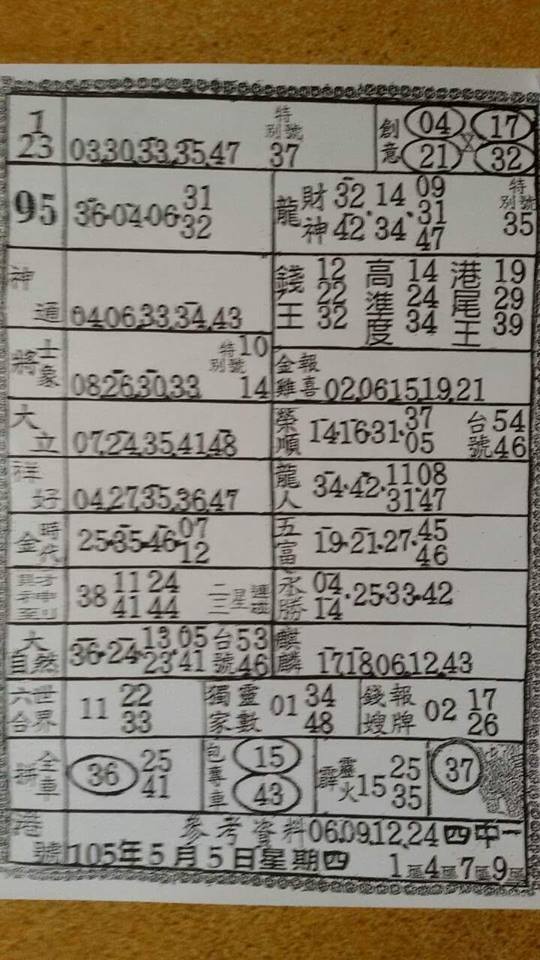 1 23 03.30.33.35.47 特別號 37 創意 04 17 21 32
95 36·04·06·31 32 龍 財神 32 42·14 34·09 31 47 特別號 35
神通 04.06.33.34.43 錢王 12 22 32 高準度 14 24 34 港尾王 19 29 39
將士象 08.26.30.33 特別號 10 14 金雞報喜 02.06.15.19.21
大立 07.24.35.41.48 榮順 14·16·31·37 05 台號 54 46
祥好 04.27.35.36.47 龍人 34·42·11 31 08 47
金時代 25·35·46·07 12 五富 19·21·27·45 46
38 11 41 24 44 二三星連碰 永勝 04 14·25·33·42
大自然 36·24·13 23.05 41 台號 53 46 麒麟 17.18.06.12.43
六合世界 11 22 33 獨家靈數 01 34 48 錢嫂報牌 02 17 26
拼全車 36 25 41 包專車 15 43 霹靈火 15 25 35 37
港號 參考資料 06.09.12.24 四中一
105年5月5日星期四 1區4區7區9區